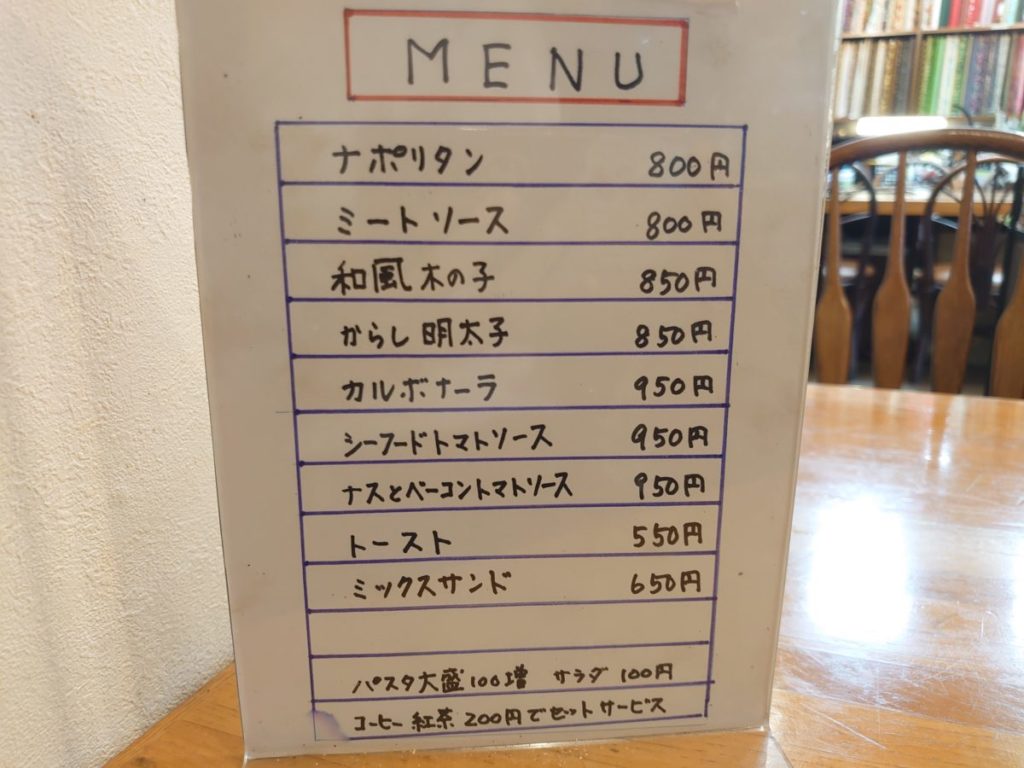 MENU
ナポリタン 800円
ミートソース 800円
和風木の子 850円
からし明太子 850円
カルボナーラ 950円
シーフードトマトソース 950円
ナスとベーコントマトソース 950円
トースト 550円
ミックスサンド 650円
パスタ大盛100増 サラダ 100円
コーヒー 紅茶 200円でセットサービス